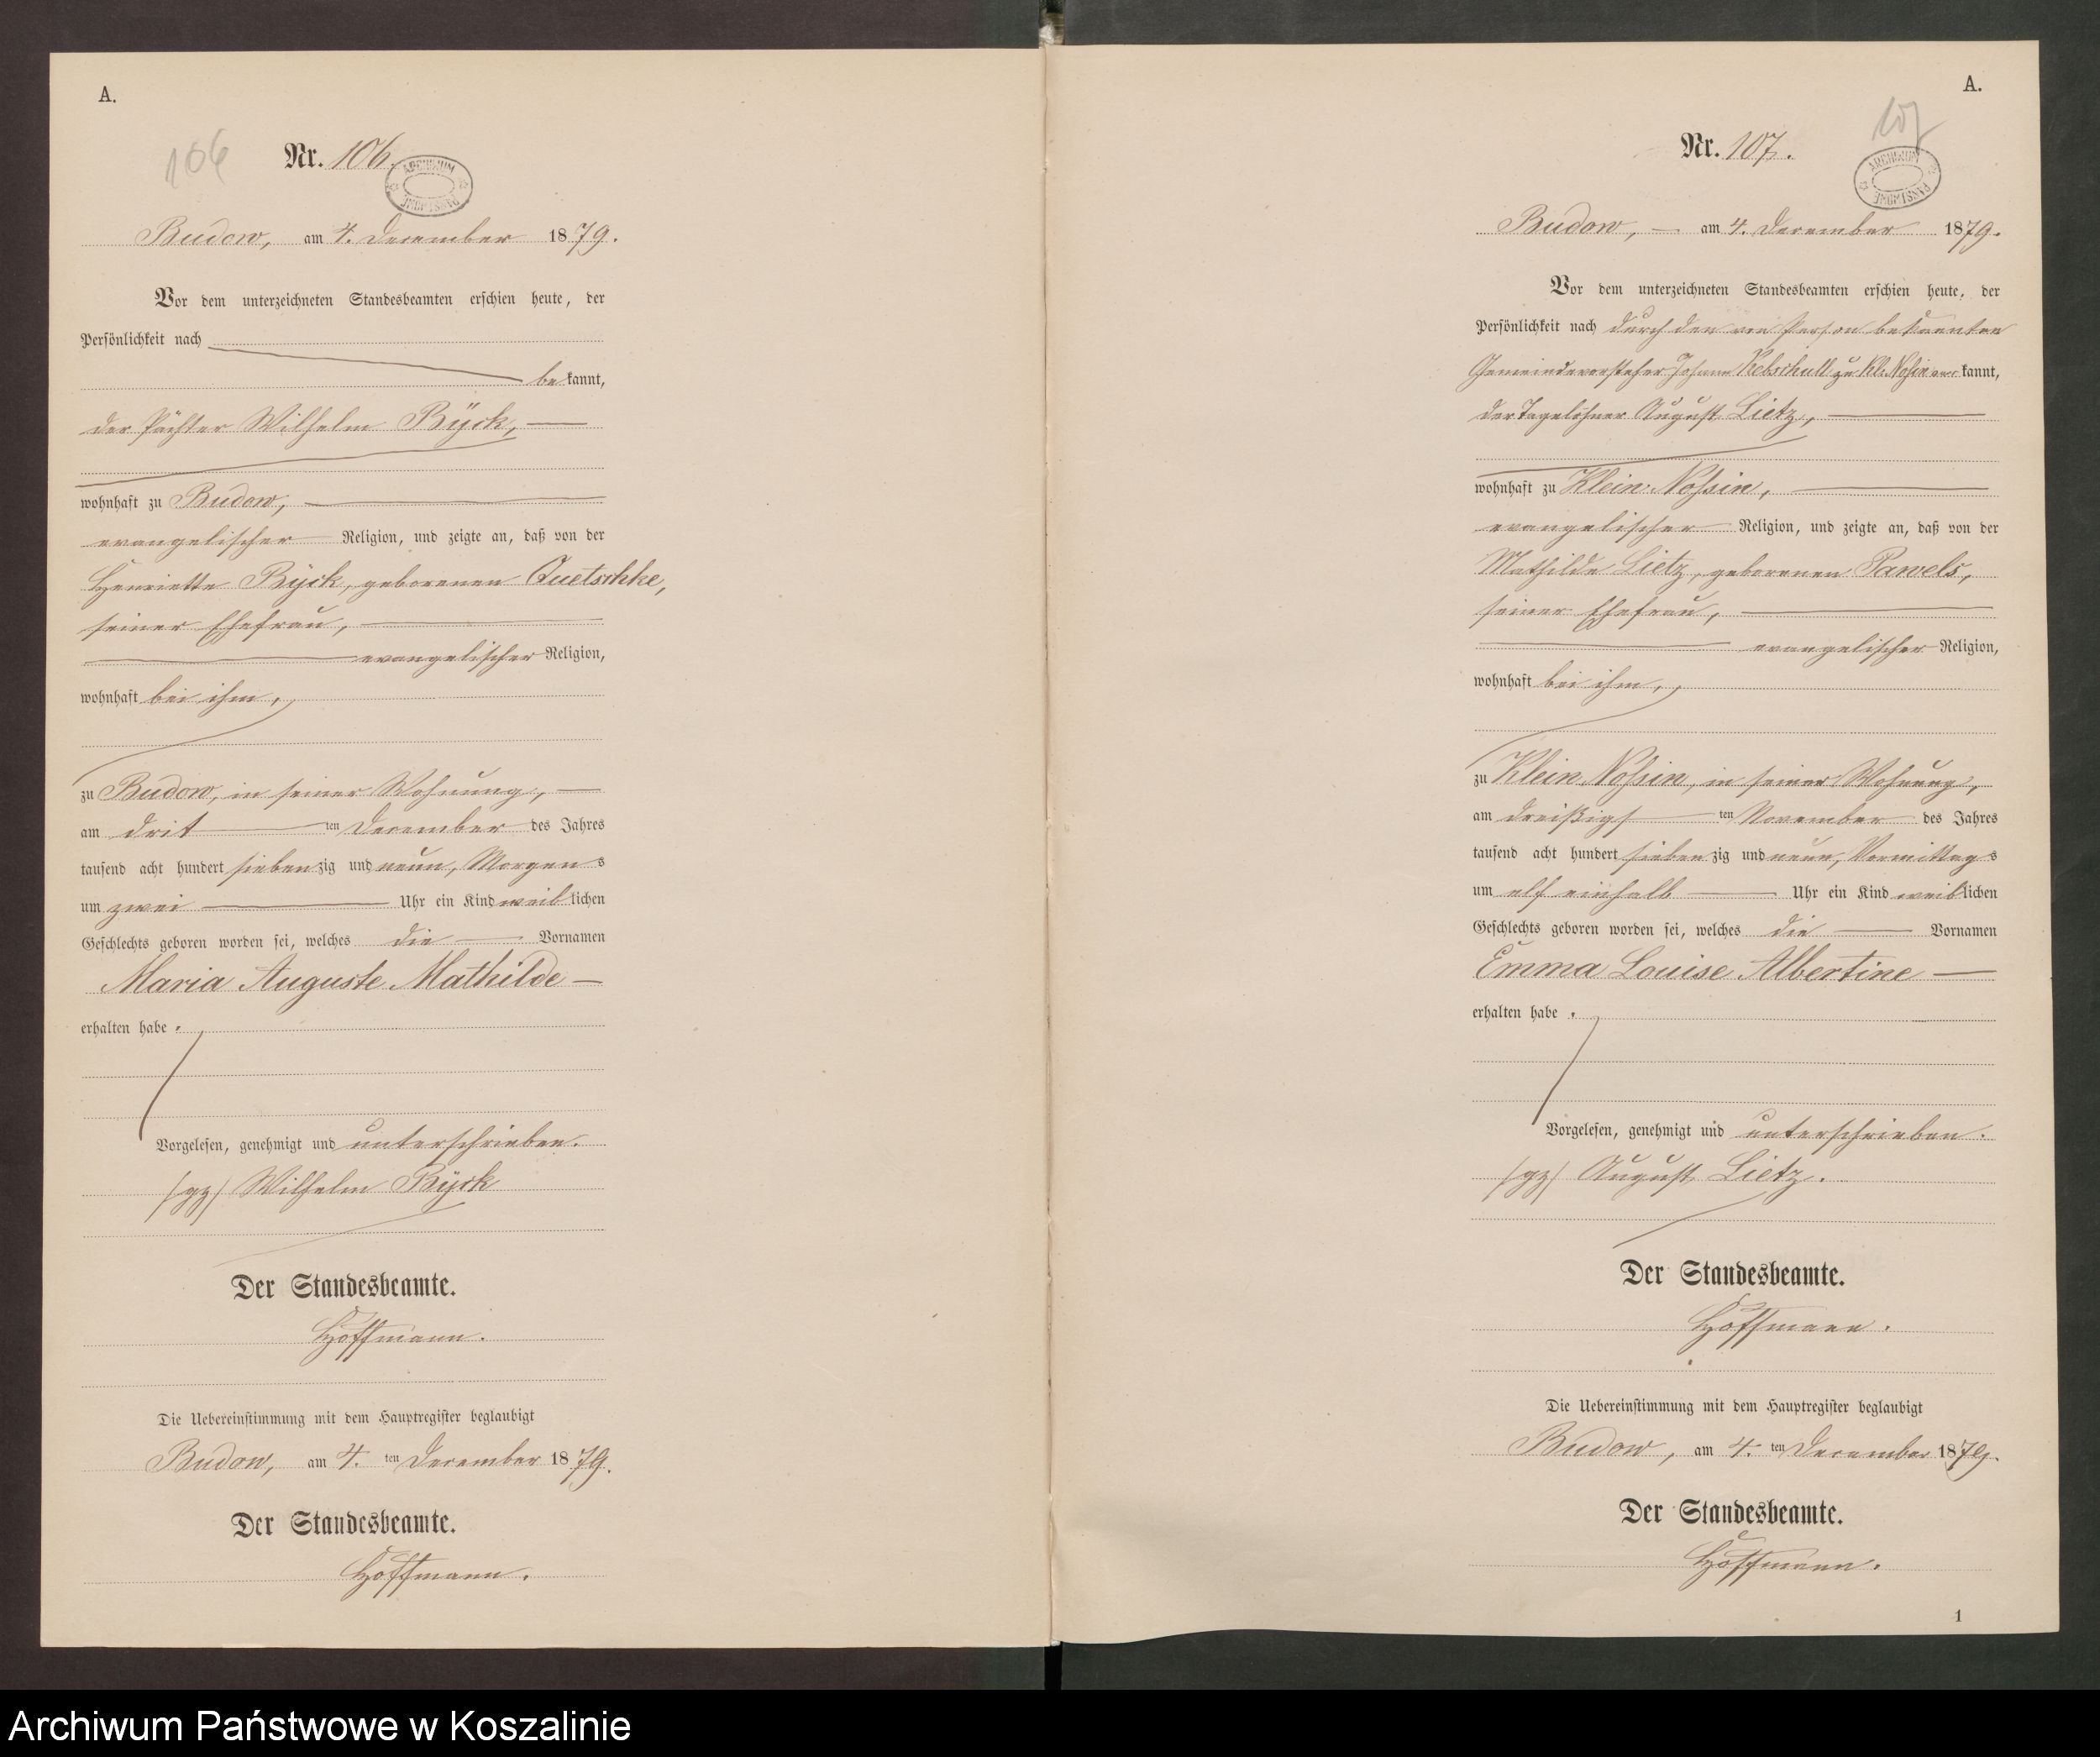 A.
106
Nr. 106.
ARCHIWUM PAŃSTWOWE
Budow, am 4. December 1879.
Vor dem unterzeichneten Standesbeamten erschien heute, der
Persönlichkeit nach
bekannt,
der Pächter Wilhelm Bÿck,
wohnhaft zu Budow,
evangelischer Religion, und zeigte an, daß von der
Henriette Bÿck, geborenen Quetschke,
seiner Ehefrau,
evangelischer Religion,
wohnhaft bei ihm,
zu Budow, in seiner Wohnung,
am drit ten December des Jahres
tausend acht hundert siebenzig und neun, Morgens
um zwei Uhr ein Kind weiblichen
Geschlechts geboren worden sei, welches die Vornamen
Maria Auguste Mathilde
erhalten habe.
Vorgelesen, genehmigt und unterschrieben.
/gz/ Wilhelm Bÿck
Der Standesbeamte.
Hoffmann.
Die Uebereinstimmung mit dem Hauptregister beglaubigt
Budow, am 4. ten December 1879.
Der Standesbeamte.
Hoffmann.
A.
107
Nr. 107.
ARCHIWUM PAŃSTWOWE
Budow, am 4. December 1879.
Vor dem unterzeichneten Standesbeamten erschien heute, der
Persönlichkeit nach durch den von Person bekannten
Gemeindevorsteher Johann zu Kl. Nossin kannt,
der Tagelöhner August Lietz,
wohnhaft zu Klein Nossin,
evangelischer Religion, und zeigte an, daß von der
Mathilde Lietz, geborenen Pawels,
seiner Ehefrau,
evangelischer Religion,
wohnhaft bei ihm,
zu Klein Nossin, in seiner Wohnung,
am dreißigs ten November des Jahres
tausend acht hundert siebenzig und neun, Vormittags
um elf einhalb Uhr ein Kind weiblichen
Geschlechts geboren worden sei, welches die Vornamen
Emma Louise Albertine
erhalten habe.
Vorgelesen, genehmigt und unterschrieben.
/gz/ August Lietz.
Der Standesbeamte.
Hoffmann.
Die Uebereinstimmung mit dem Hauptregister beglaubigt
Budow, am 4. ten December 1879.
Der Standesbeamte.
Hoffmann.
1
Archiwum Państwowe w Koszalinie